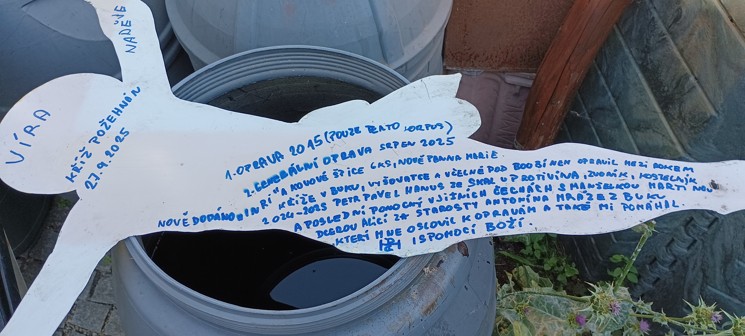 NADĚJE
VÍRA
KŘÍŽ POŽEHNÁN
27.9.2025
1. OPRAVA 2015 (POUZE TENTO KORPUS)
2. GENERÁLNÍ OPRAVA SRPEN 2025
NOVĚ DODÁNO INRI A KOVOVÉ ŠPICE 6KS, NOVĚ PANNA MARIE.
KŘÍŽE V BUKU, VYŠOVATCE A VČELNÉ POD BOUBÍNEM OPRAVIL MEZI ROKEM
2024-2025 PETR PAVEL HANUS ZE SKAL U PROTIVÍNA, ZVONÍK, KOSTELNÍK
A POSLEDNÍ PONOCNÝ V JIŽNÍCH ČECHÁCH S MANŽELKOU MARTINOU
DCEROU ALICÍ ZA STAROSTY ANTONÍNA MRÁZE Z BUKU
KTERÝ MNE OSLOVIL K OPRAVÁM TAKÉ MI POMÁHAL.
I S POMOCÍ BOŽÍ.